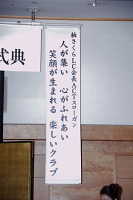 柏さくらLC会長ACTスローガン
人が集い 心がふれあい
笑顔が生まれる 楽しいクラブ
式典